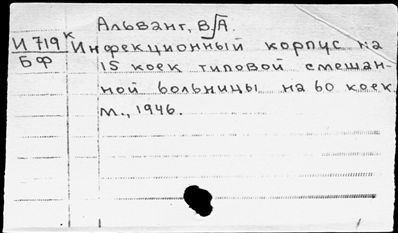 Альванг, В. А.
И 719 к Инфекционный корпус на
БФ 15 коек типовой смешан-
ной больницы на 60 коек.
М., 1946.